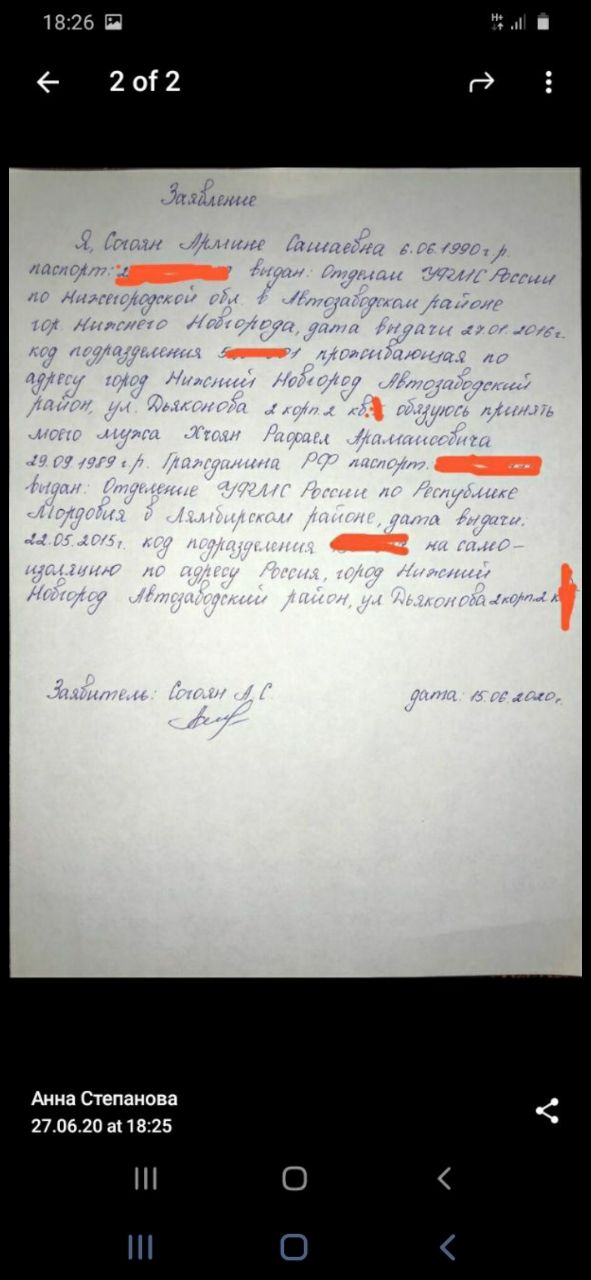 18:26
2 of 2
Заявление
Я, Согоян Армине Сашаевна 6.06.1990г.р.
паспорт: выдан: Отделом УФМС России
по Нижегородской обл. в Автозаводском районе
гор. Нижнего Новгорода, дата выдачи 27.01.2016г.
код подразделения проживающая по
адресу город Нижний Новгород Автозаводский
район, ул. Дьяконова 2 корп.2 кв. обязуюсь принять
моего мужа Хчоян Рафаел Арамаисовича
29.09.1989г.р. Гражданина РФ паспорт.
выдан: Отделение УФМС России по Республике
Мордовия в Лямбирском районе, дата выдачи:
22.05.2015г. код подразделения на само-
изоляцию по адресу Россия, город Нижний
Новгород Автозаводский район, ул Дьяконова 2корп.2 к
Заявитель: Согоян А.С. дата: 15.06.2020г.
Анна Степанова
27.06.20 at 18:25